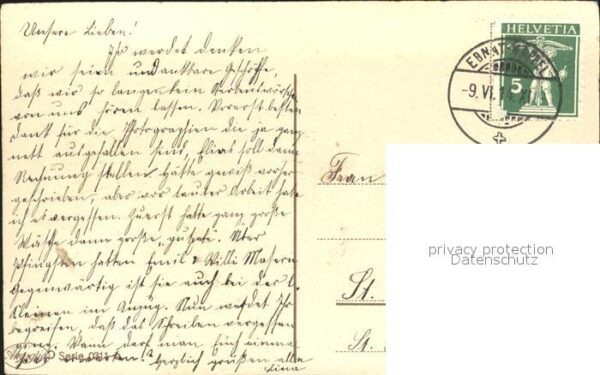 Unsere Lieben!
Ihr werdet denken
wir seien undankbare Geschöpfe,
daß wir so lange kein Sterbenswörtchen
von uns hören lassen. Vorerst besten
Dank für die Photographien die ja ganz
nett ausgefallen sind, soll dann
Rechnung stellen. Hätte gewiß vorher
geschrieben, aber vor lauter Arbeit habe
ich es vergessen. Zuerst hatte ganz große
Wäsche dann große „putzete". Über
Pfingsten hatten Emil & Willi Masern
Gegenwärtig ist sie auch bei der
Kleinen im Anzug. Nun werdet Ihr
begreifen, daß das Schreiben vergessen
ging. Wann darf man Euch einmal
hier erwarten? Herzlich grüßen alle
Lina
Serie 0311
HELVETIA
5
EBNAT-KAPPEL
-9.VI.
Frau
St.
St.
privacy protection
Datenschutz